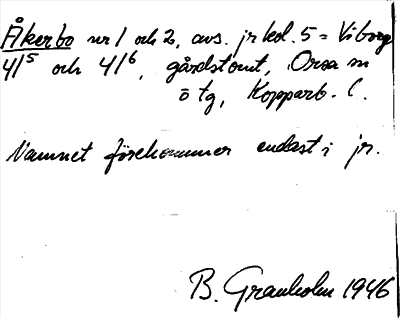 Åkerbo nr 1 och 2, avs. jr kol. 5 = Viborg
4/⁵ och 4/⁶, gårdstomt, Orsa sn
o tg, Kopparb. l.
Namnet förekommer endast i jr.
B. Granholm 1946